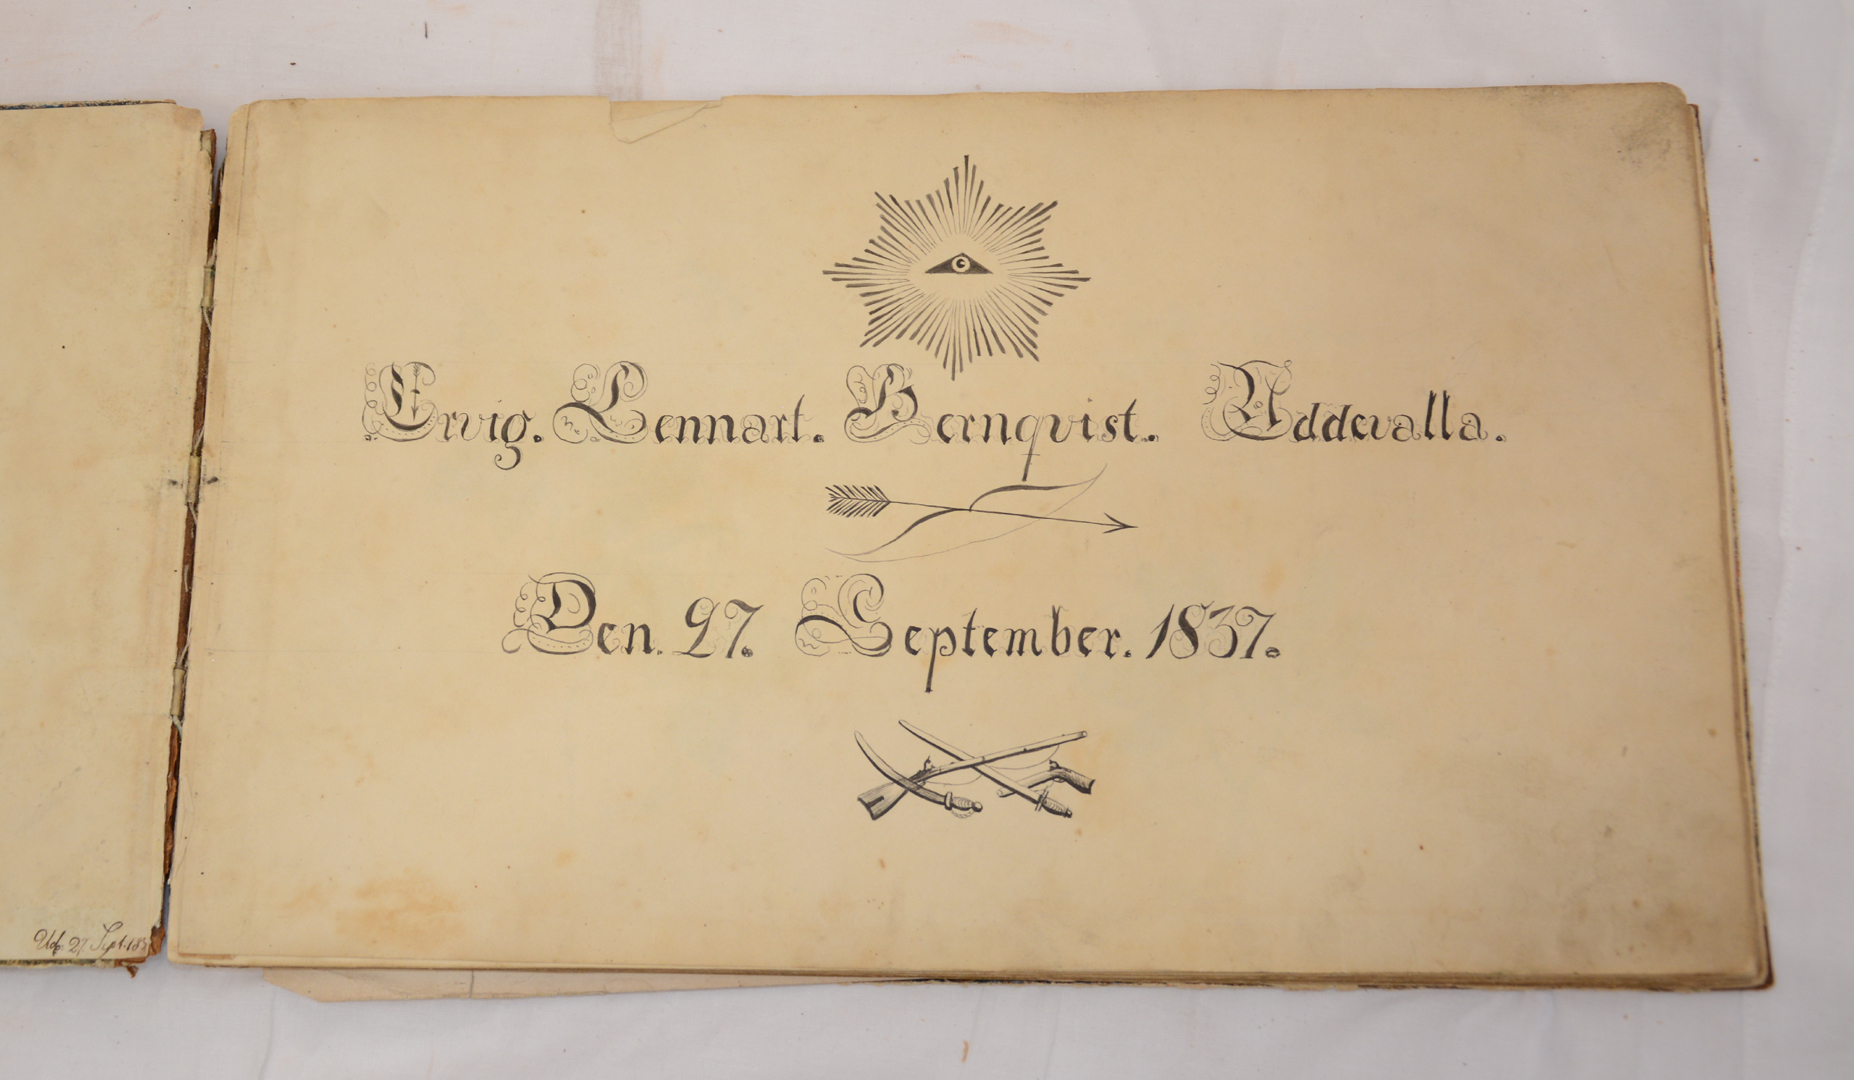 Ervig. Lennart. Bernqvist. Uddevalla.
Den. 27. September. 1837.
27 Sept. 183